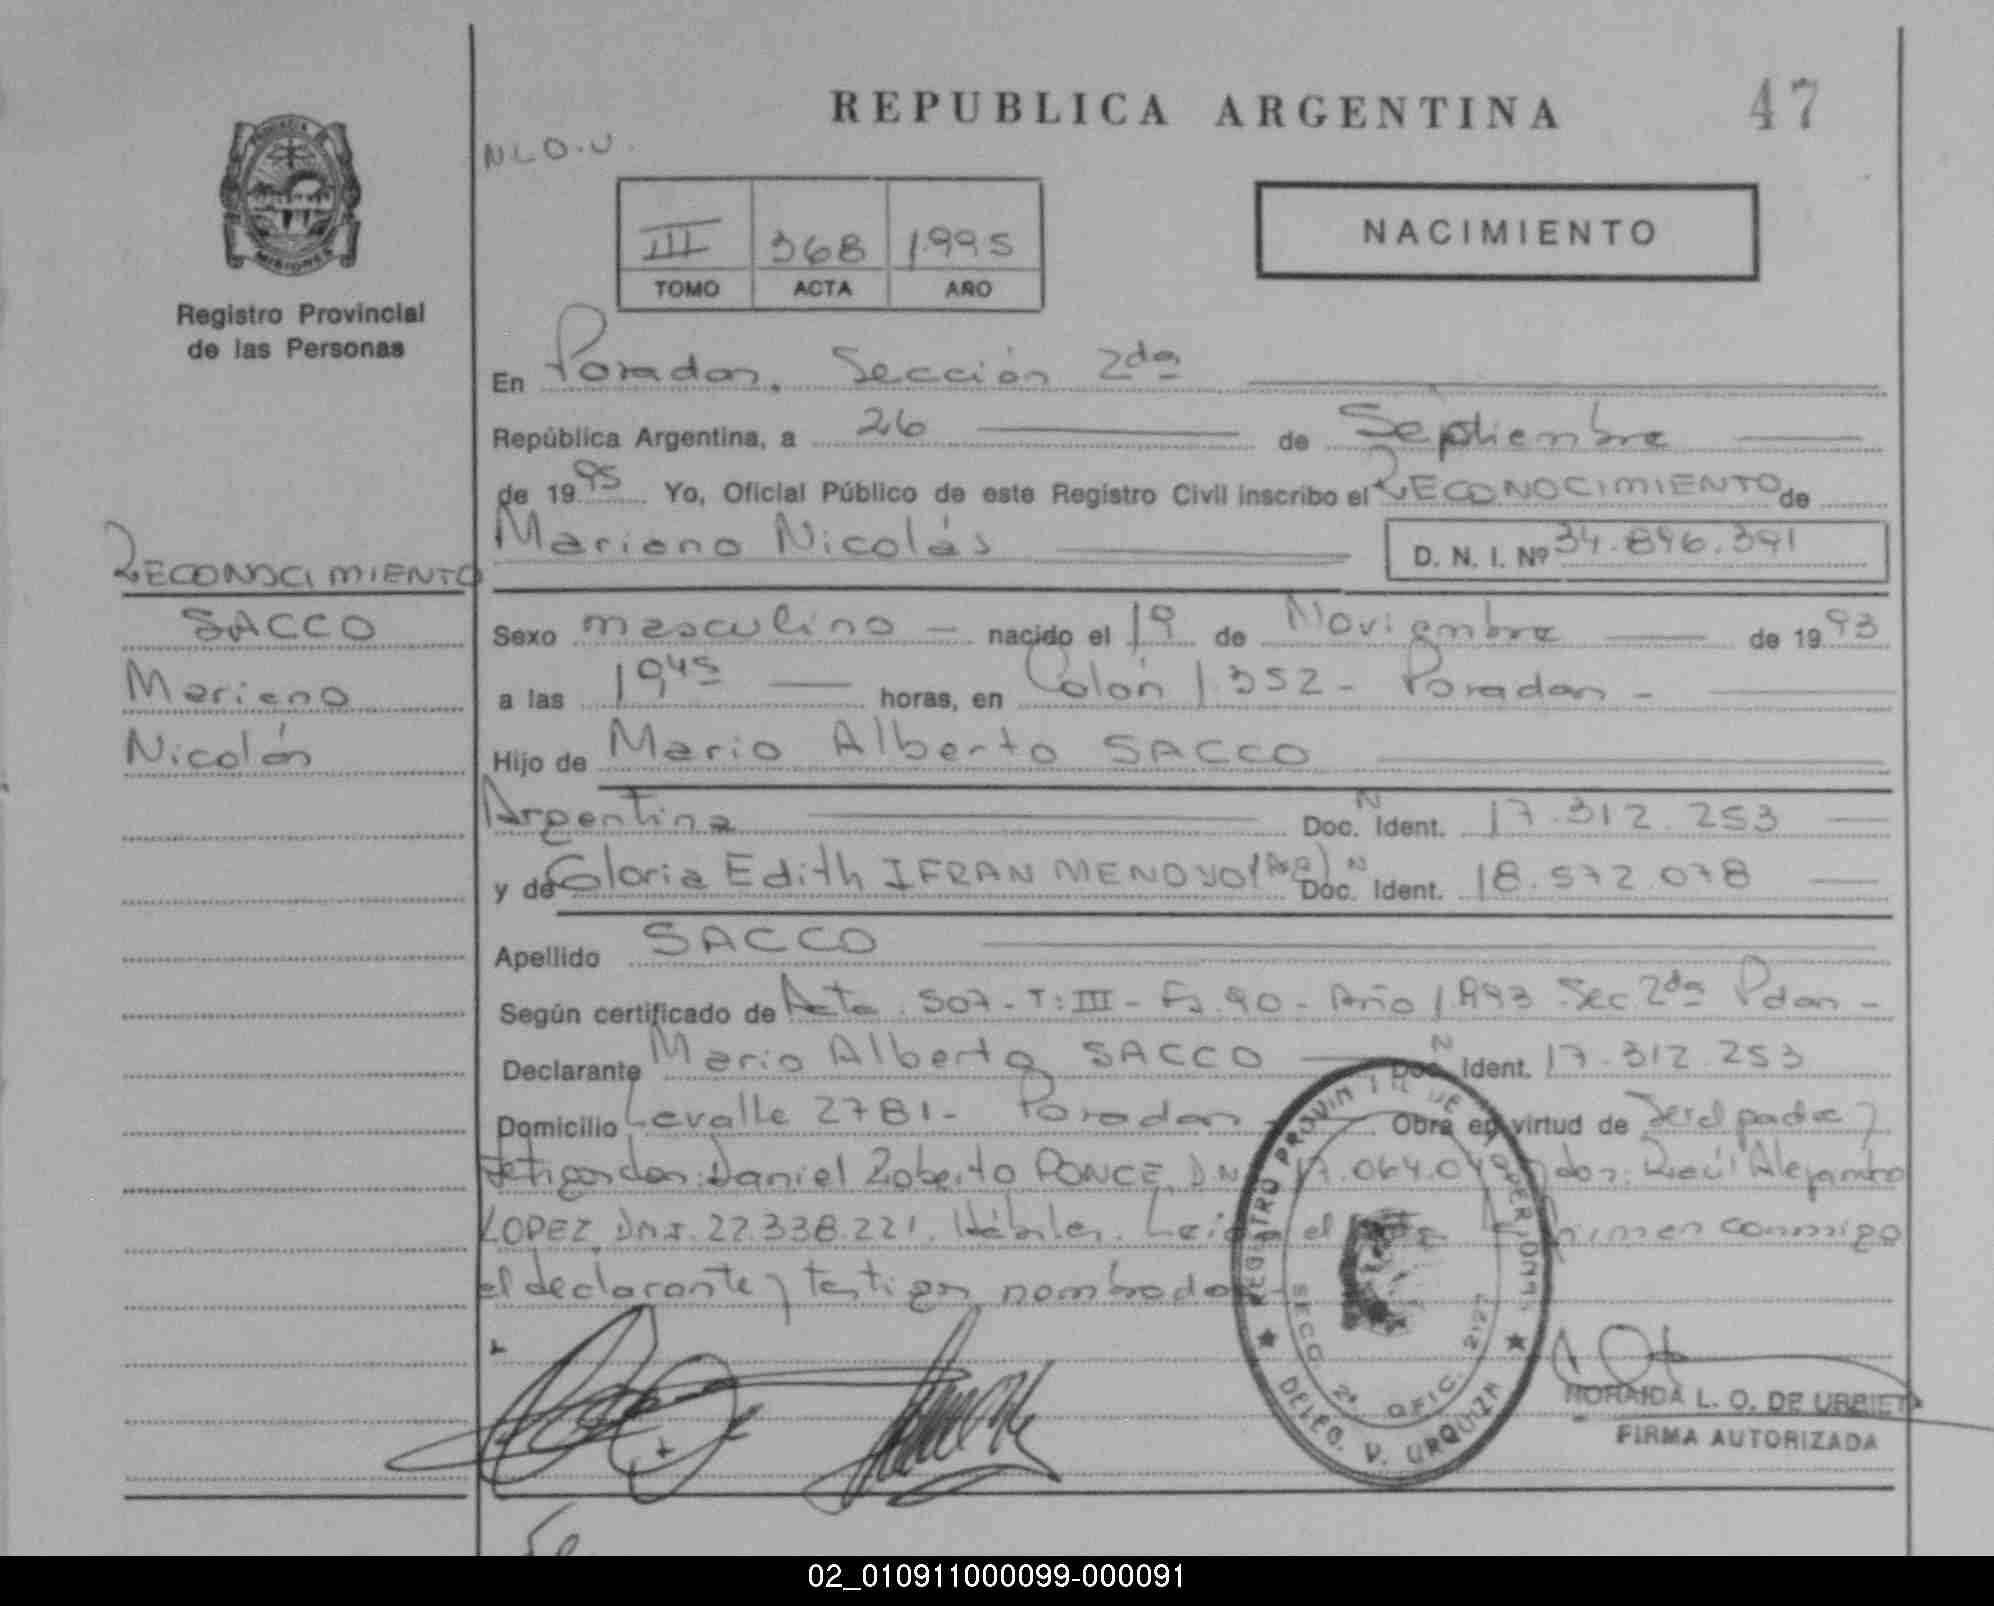 REPUBLICA ARGENTINA
47
N.L.O.U.
III 368 1995
TOMO ACTA AÑO
NACIMIENTO
MISIONES
Registro Provincial
de las Personas
En Posadas, Sección 2da
República Argentina, a 26 de Septiembre
de 1995 Yo, Oficial Público de este Registro Civil inscribo el RECONOCIMIENTO de
Mariano Nicolás D. N. I. Nº 34.896.391
RECONOCIMIENTO
SACCO
Mariano
Nicolás
Sexo masculino - nacido el 19 de Noviembre de 1993
a las 19,45 horas, en Colón 1.352 - Posadas -
Hijo de Mario Alberto SACCO
Argentina Doc. N Ident. 17.312.253
y de Gloria Edith IFRAN MENOYO (Arg) Doc. N Ident. 18.572.078
Apellido SACCO
Según certificado de Acta. 507 - T: III - Fs. 90 - Año 1.993 Sec 2da Pdas -
Declarante Mario Alberto SACCO Doc. N Ident. 17.312.253
Domicilio Lavalle 2781 - Posadas Obra en virtud de Ser el padre y
testigos dos: Daniel Roberto PONCE, D.N 17.064.0 dos: Raúl Alejandro
LOPEZ, DNI. 22.338.221. Hábiles. Leída el acta firman conmigo
el declarante y testigos nombrados
REGISTRO PROVINCIAL DE LAS PERSONAS
SECC. 2ª OFIC. 2127
DELEG. V. URQUIZA
NORAIDA L. O. DE URBIETA
FIRMA AUTORIZADA
02_010911000099-000091